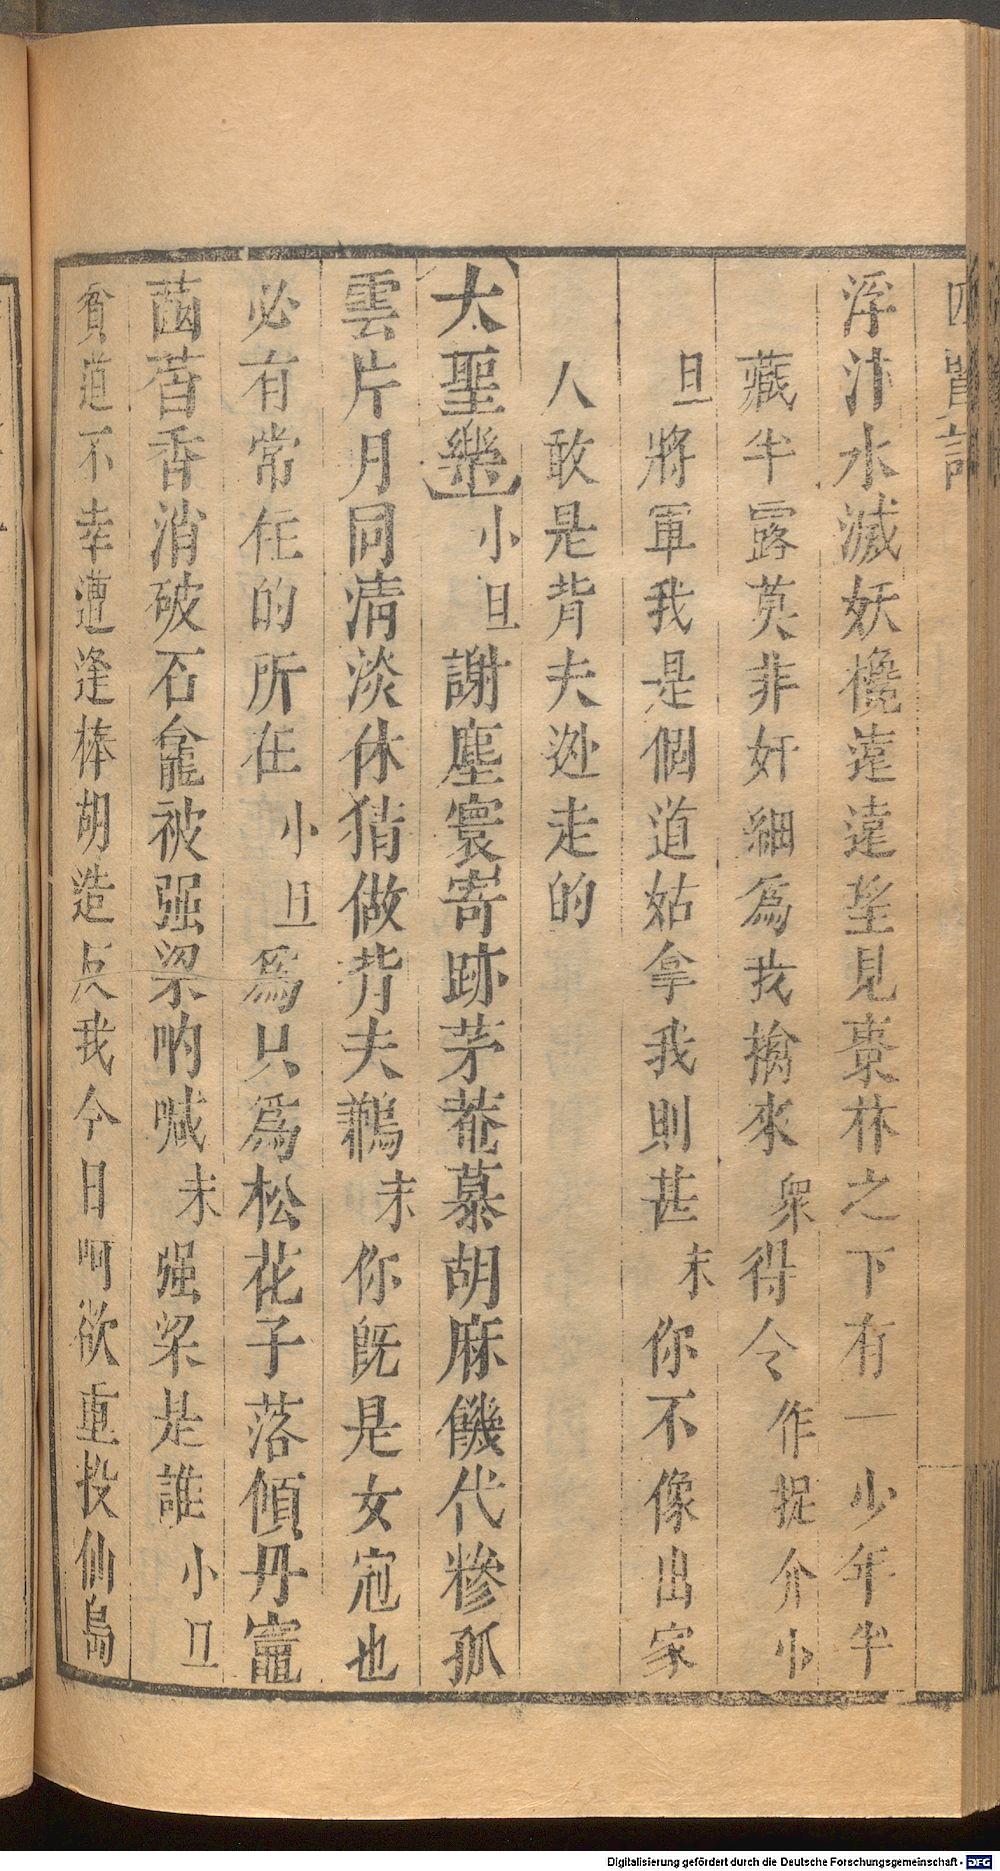 浮汴水滅妖欃遠遠望見棗林之下有一少年半
藏半露莫非奸細爲我擒來衆得令作捉介小
旦將軍我是個道姑拿我則甚末你不像出家
人敢是背夫逃走的
大聖樂小旦謝塵寰寄跡茅菴慕胡麻饑代糝孤
雲片月同清淡休猜做背夫鶼末你既是女冠也
必有常住的所在小旦爲只爲松花子落傾丹竈
菡萏香消破石龕被强梁吶喊末强梁是誰小旦
貧道不幸遭逢棒胡造反我今日呵欲重投仙島
Digitalisierung gefördert durch die Deutsche Forschungsgemeinschaft - DFG